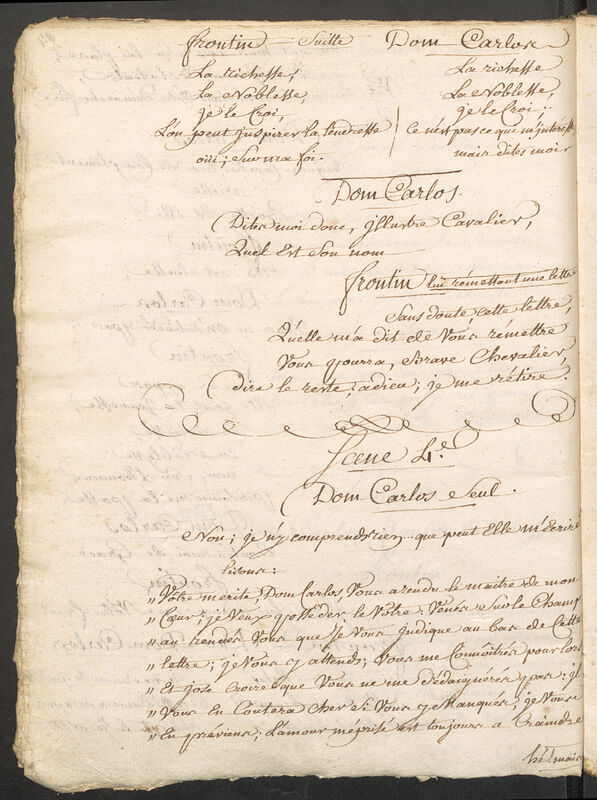 frontin Suitte Dom Carlos
La richesse, La richesse
La Noblesse, La Noblesse,
je le Croi, je le Croi,
L'on peut jnspirer la tendresse ce n'est pas ce qui m'jnteresse
oüi, Sur ma foi. mais dites moi
Dom Carlos.
Dites moi donc, jllustre Cavalier,
Quel Est Son nom
frontin lui rémettant une lettre
Sans doute, cette lettre,
Qu'elle m'a dit de Vous rémettre
Vous pourra, brave Chevalier,
dire le reste; adieu; je me rétire.
Scene 4.e
Dom Carlos Seul.
Non; je n'y comprends rien.. que peut Elle m'Ecrire
lisons:
"Vôtre mérite Dom Carlos Vous a rendu le maitre de mon
"Cœur; je Veux posséder le Vôtre; Venés Sur le Champ
"au rendés Vous que je Vous jndique au bas de Cette
"lettre; je Vous y attends; Vous me Connoîtrés pour lors
"Et j'ose Croire que Vous ne me dédaignerés pas; jl
"Vous En Coutera Cher Si Vous y Manqués, je Vous
"En préviens; L'amour méprisé est toujours a Craindre
hé! mais